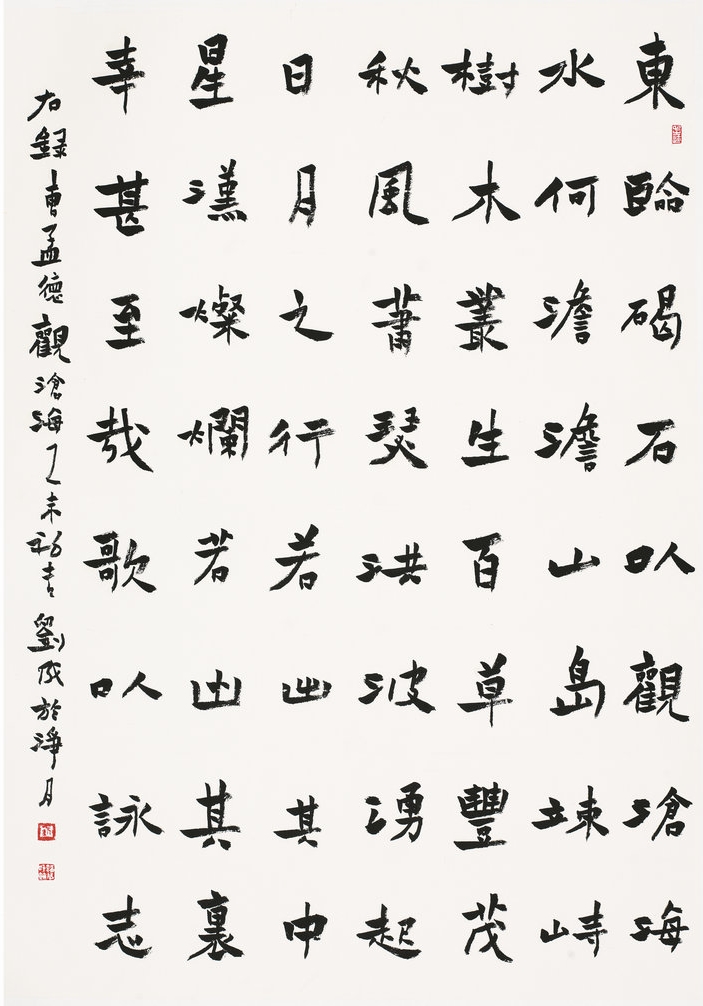 東臨碣石以觀滄海
水何澹澹山島竦峙
樹木叢生百草豐茂
秋風蕭瑟洪波湧起
日月之行若出其中
星漢燦爛若出其裏
幸甚至哉歌以詠志
右錄曹孟德觀滄海乙未初劉成於淨月